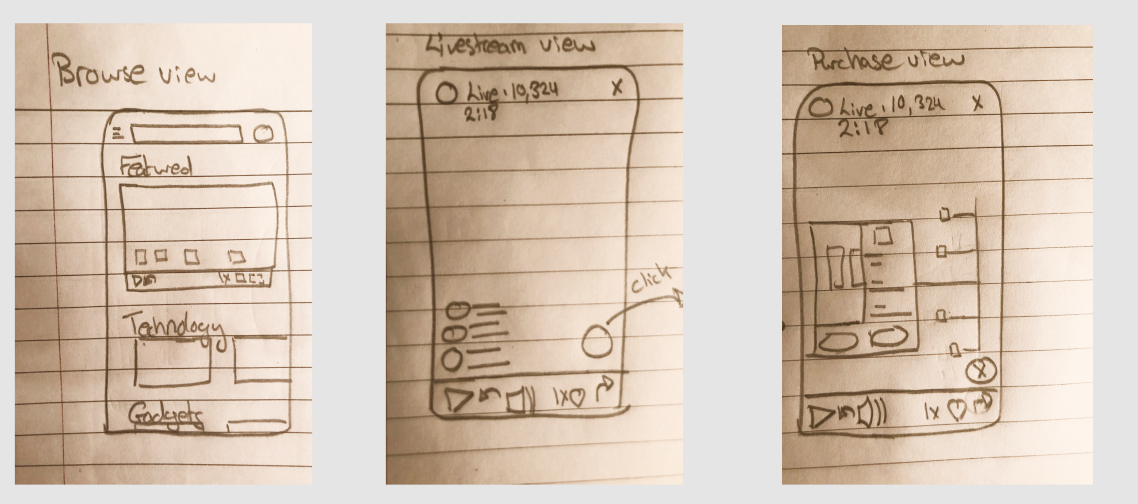 Browse view
Featured
1x
Technology
Gadgets
Livestream view
Live · 10,324
X
2:18
click
1x
Purchase view
Live · 10,324
X
2:18
X
1x